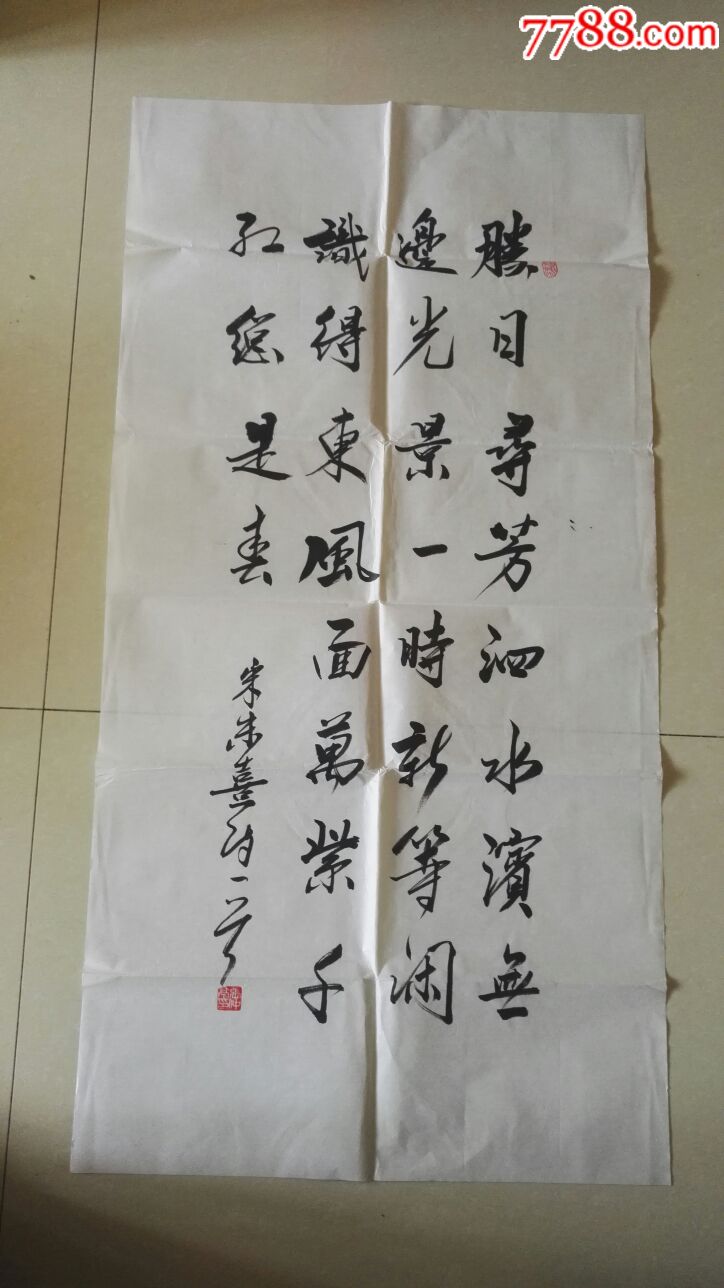 7788.com
勝日尋芳泗水濱無
邊光景一時新等闲
識得東風面萬紫千
紅總是春
宋朱熹詩一首